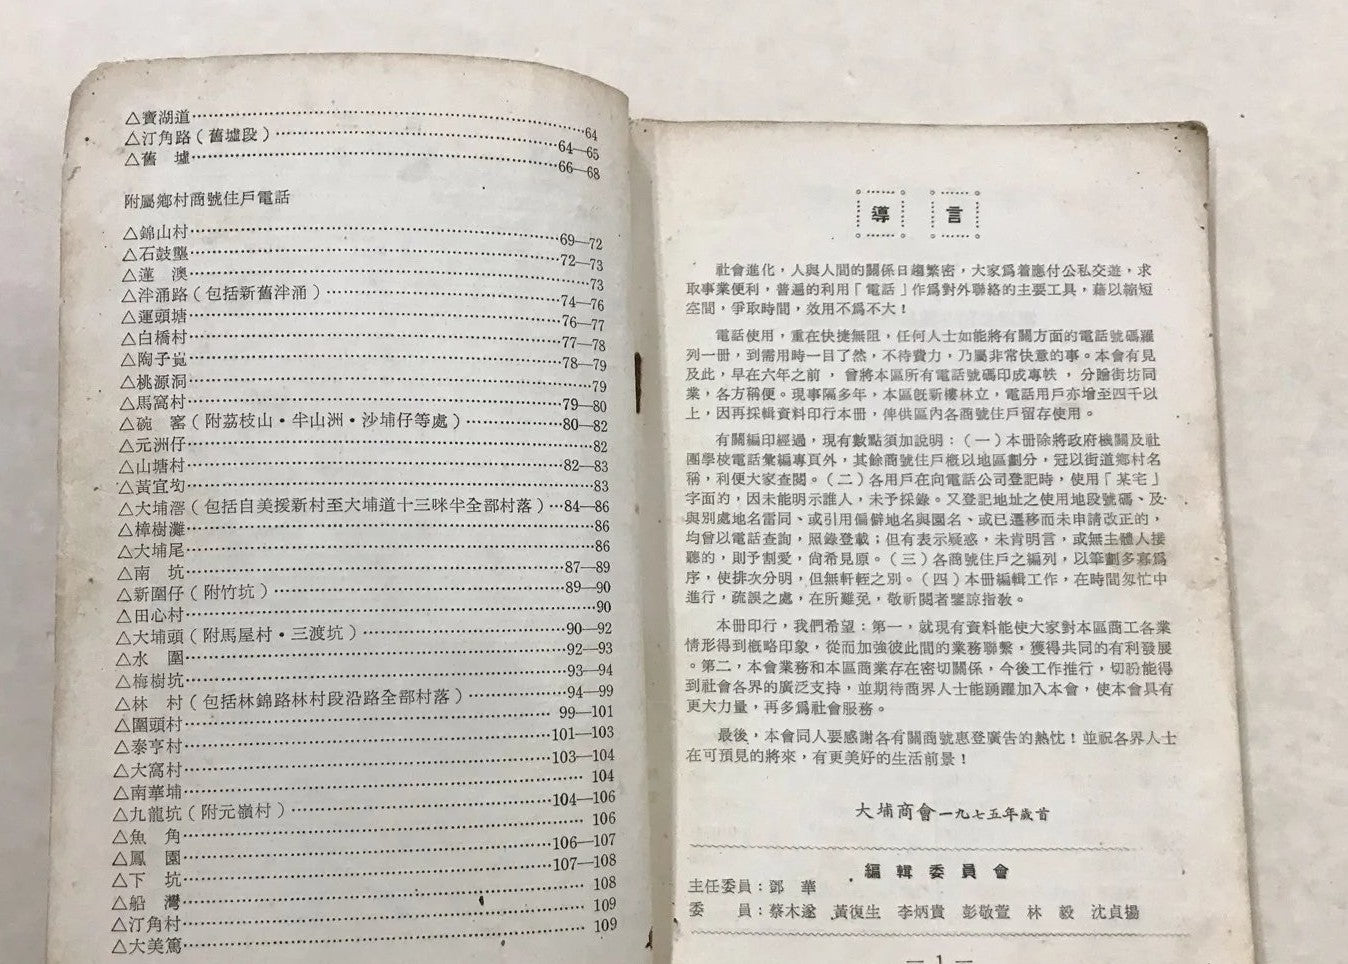 △寶湖道⋯⋯⋯⋯64
△汀角路（舊墟段）⋯⋯⋯⋯64—65
△舊　墟⋯⋯⋯⋯66—68
附屬鄉村商號住戶電話
△錦山村⋯⋯⋯⋯69—72
△石鼓壟⋯⋯⋯⋯72—73
△蓮　澳⋯⋯⋯⋯73
△泮涌路（包括新舊泮涌）⋯⋯⋯⋯74—76
△運頭塘⋯⋯⋯⋯76—77
△白橋村⋯⋯⋯⋯77—78
△陶子峴⋯⋯⋯⋯78—79
△桃源洞⋯⋯⋯⋯79
△馬窩村⋯⋯⋯⋯79—80
△碗　窰（附荔枝山・半山洲・沙埔仔等處）⋯⋯⋯⋯80—82
△元洲仔⋯⋯⋯⋯82
△山塘村⋯⋯⋯⋯82—83
△黃宜坳⋯⋯⋯⋯83
△大埔滘（包括自美援新村至大埔道十三咪半全部村落）⋯84—86
△樟樹灘⋯⋯⋯⋯86
△大埔尾⋯⋯⋯⋯86
△南　坑⋯⋯⋯⋯87—89
△新圍仔（附竹坑）⋯⋯⋯⋯89—90
△田心村⋯⋯⋯⋯90
△大埔頭（附馬屋村・三渡坑）⋯⋯⋯⋯90—92
△水　圍⋯⋯⋯⋯92—93
△梅樹坑⋯⋯⋯⋯93—94
△林　村（包括林錦路林村段沿路全部村落）⋯⋯⋯⋯94—99
△圍頭村⋯⋯⋯⋯99—101
△泰亨村⋯⋯⋯⋯101—103
△大窩村⋯⋯⋯⋯103—104
△南華埔⋯⋯⋯⋯104
△九龍坑（附元嶺村）⋯⋯⋯⋯104—106
△魚　角⋯⋯⋯⋯106
△鳳　園⋯⋯⋯⋯106—107
△下　坑⋯⋯⋯⋯107—108
△船　灣⋯⋯⋯⋯108
△汀角村⋯⋯⋯⋯109
△大美篤⋯⋯⋯⋯109
導言
社會進化，人與人間的關係日趨繁密，大家爲着應付公私交遊，求
取事業便利，普遍的利用「電話」作爲對外聯絡的主要工具，藉以縮短
空間，爭取時間，效用不爲不大！
電話使用，重在快捷無阻，任何人士如能將有關方面的電話號碼羅
列一冊，到需用時一目了然，不待費力，乃屬非常快意的事。本會有見
及此，早在六年之前，曾將本區所有電話號碼印成專帙，分贈街坊同
業，各方稱便。現事隔多年，本區既新樓林立，電話用戶亦增至四千以
上，因再採輯資料印行本冊，俾供區內各商號住戶留存使用。
有關編印經過，現有數點須加說明：（一）本冊除將政府機關及社
團學校電話彙編專頁外，其餘商號住戶概以地區劃分，冠以街道鄉村名
稱，利便大家查閱。（二）各用戶在向電話公司登記時，使用「某宅」
字面的，因未能明示誰人，未予採錄。又登記地址之使用地段號碼、及
與別處地名雷同、或引用偏僻地名與園名、或已遷移而未申請改正的，
均曾以電話查詢，照錄登載；但有表示疑惑，未肯明言，或無主體人接
聽的，則予割愛，尙希見原。（三）各商號住戶之編列，以筆劃多寡爲
序，使排次分明，但無軒輊之別。（四）本冊編輯工作，在時間匆忙中
進行，疏誤之處，在所難免，敬祈閱者鑒諒指敎。
本冊印行，我們希望：第一，就現有資料能使大家對本區商工各業
情形得到概略印象，從而加強彼此間的業務聯繫，獲得共同的有利發展
。第二，本會業務和本區商業存在密切關係，今後工作推行，切盼能得
到社會各界的廣泛支持，並期待商界人士能踴躍加入本會，使本會具有
更大力量，再多爲社會服務。
最後，本會同人要感謝各有關商號惠登廣告的熱忱！並祝各界人士
在可預見的將來，有更美好的生活前景！
大埔商會一九七五年歲首
編輯委員會
主任委員：鄧　華
委　　員：蔡木邃　黃復生　李炳貴　彭敬萱　林　毅　沈貞揚
— 1 —